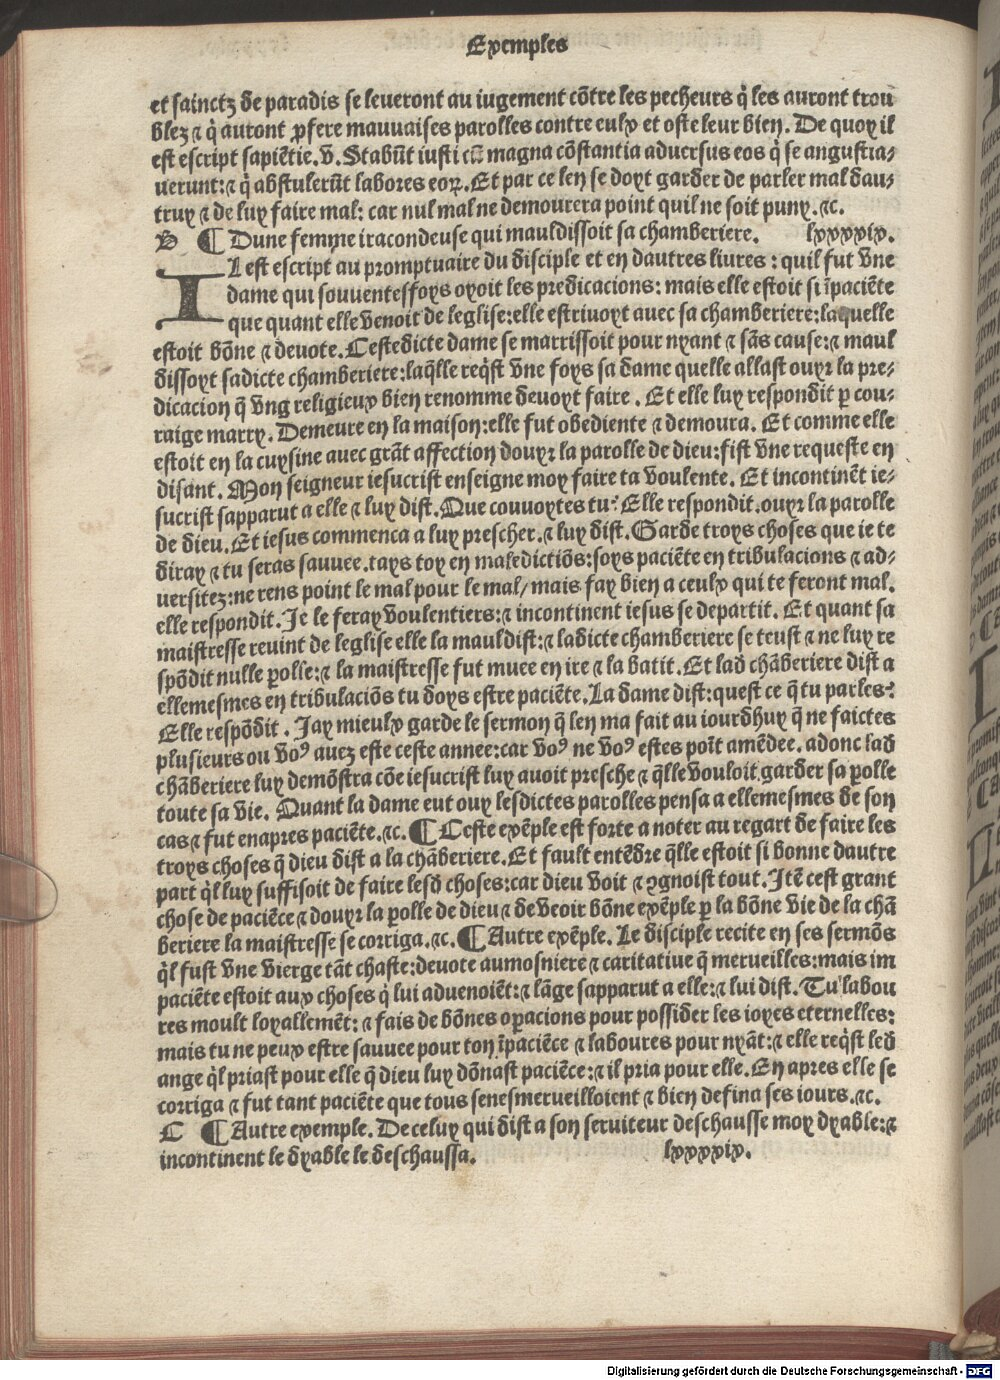 Exemples
et sainctz de paradis se leueront au iugement cõtre les pecheurs q̃ les auront trou
blez ⁊ q̃ auront ꝓfere mauuaises parolles contre eulx et oste leur bien. De quoy il
est escript sapiẽtie. v. Stabũt iusti cũ magna cõstantia aduersus eos q̃ se angustia-
uerunt: ⁊ q̃ abstulerũt labores eoꝝ. Et par ce len se doyt garder de parler mal dau-
truy ⁊ de luy faire mal: car nul mal ne demourera point quil ne soit puny. ⁊c.
B ¶ Dune femme iracondeuse qui mauldissoit sa chamberiere. lxxxxix.
IL est escript au promptuaire du disciple et en dautres liures: quil fut vne
dame qui souuentesfoys oyoit les predicacions: mais elle estoit si ĩpaciẽte
que quant elle venoit de leglise: elle estriuoyt auec sa chamberiere: laquelle
estoit bõne ⁊ deuote. Cestedicte dame se marrissoit pour nyant ⁊ sãs cause: ⁊ maul
dissoyt sadicte chamberiere: laq̃lle req̃st vne foys sa dame quelle allast ouyꝛ la pre-
dicacion q̃ vng religieux bien renomme deuoyt faire. Et elle luy respondit ꝑ cou-
raige marry. Demeure en la maison: elle fut obediente ⁊ demoura. Et comme elle
estoit en la cuysine auec grãt affection douyꝛ la parolle de dieu: fist vne requeste en
disant. Mon seigneur iesucrist enseigne moy faire ta voulente. Et incontinẽt ie-
sucrist sapparut a elle ⁊ luy dist. Que couuoytes tu? Elle respondit. ouyꝛ la parolle
de dieu. Et iesus commenca a luy prescher. ⁊ luy dist. Garde troys choses que ie te
diray ⁊ tu seras sauuee. tays toy en maledictiõs: soys paciẽte en tribulacions ⁊ ad-
uersitez: ne rens point le mal pour le mal/ mais fay bien a ceulx qui te feront mal.
elle respondit. Je le feray voulentiers: ⁊ incontinent iesus se departit. Et quant sa
maistresse reuint de leglise elle la mauldist: ⁊ ladicte chamberiere se teust ⁊ ne luy re
spõdit nulle ꝑolle: ⁊ la maistresse fut muee en ire ⁊ la batit. Et lad chãberiere dist a
ellemesmes en tribulaciõs tu doys estre paciẽte. La dame dist: quest ce q̃ tu parles?
Elle respõdit. Jay mieulx garde le sermon q̃ len ma fait au iourdhuy q̃ ne faictes
plusieurs ou voꝰ auez este ceste annee: car voꝰ ne voꝰ estes poĩt amẽdee. adonc lad
chãberiere luy demõstra cõe iesucrist luy auoit presche ⁊ q̃lle vouloit garder sa ꝑolle
toute sa vie. Quant la dame eut ouy lesdictes parolles pensa a ellemesmes de son
cas ⁊ fut enapres paciẽte. ⁊c. ¶ Ceste exẽple est forte a noter au regart de faire les
troys choses q̃ dieu dist a la chãberiere. Et fault entẽdre q̃lle estoit si bonne dautre
part q̃l luy suffisoit de faire lesd choses: car dieu voit ⁊ ꝯgnoist tout. Itẽ cest grant
chose de paciẽce ⁊ douyꝛ la ꝑolle de dieu ⁊ de veoir bõne exẽple ꝑ la bõne vie de la chã
beriere la maistresse se corriga. ⁊c. ¶ Autre exẽple. Le disciple recite en ses sermõs
q̃l fust vne vierge tãt chaste: deuote aumosniere ⁊ caritatiue q̃ merueilles: mais im
paciẽte estoit aux choses q̃ lui aduenoiẽt: ⁊ lãge sapparut a elle: ⁊ lui dist. Tu labou
res moult loyallemẽt: ⁊ fais de bõnes oꝑacions pour possider les ioyes eternelles:
mais tu ne peux estre sauuee pour ton ĩpaciẽce ⁊ laboures pour nyãt: ⁊ elle req̃st led
ange q̃l priast pour elle q̃ dieu luy dõnast paciẽce: ⁊ il pria pour elle. En apres elle se
corriga ⁊ fut tant paciẽte que tous senesmerueilloient ⁊ bien defina ses iours. ⁊c.
C ¶ Autre exemple. De celuy qui dist a son seruiteur deschausse moy dyable: ⁊
incontinent le dyable le deschaussa. lxxxxix.
Digitalisierung gefördert durch die Deutsche Forschungsgemeinschaft - DFG